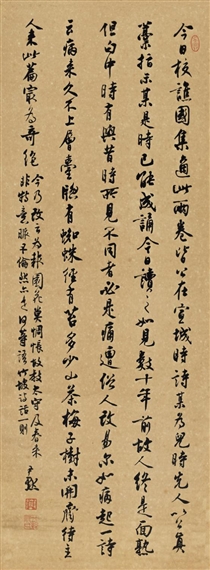 今日校譙國集適此兩卷皆公在宣城時詩某為兒時先人以公真
藁指示某是時已能成誦今日讀之如見數十年前故人終是面熟
但句中時有與昔時所見不同者必是痛遭俗人改易爾如病起一詩
云病來久不上層臺牎有蜘蛛徑有苔多少山茶梅子樹未開齊待主
人來此篇最為奇絕
今乃改云為報園花莫惆悵故教太守及春來
非特意脈不倫然亦是何等語 竹坡詩話一則
尹默